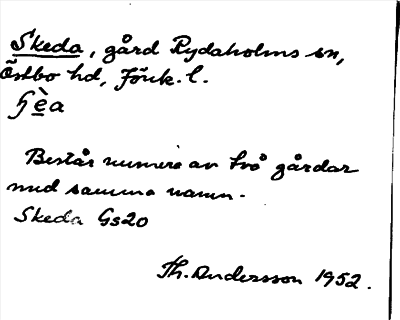 Skeda, gård Rydaholms sn,
Östbo hd, Jönk. l.
ɧèa
Består numera av två gårdar
med samma namn.
Skeda Gs20
Th. Andersson 1952.